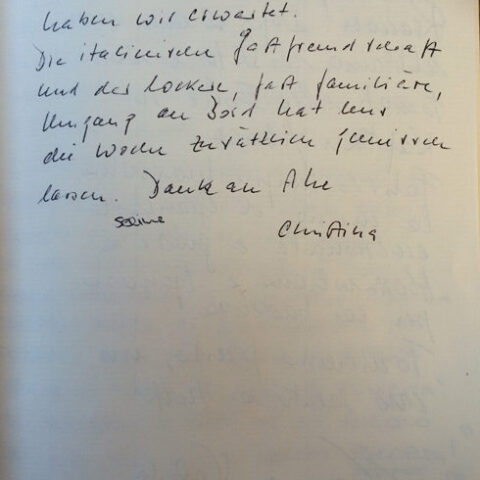 haben wir erwartet.
Die italienischen Gastfreundschaft
und der lockere, fast familiäre,
Umgang an Bord hat uns
die Woche zusätzlich geniessen
lassen. Dank an Alle
Sabine
Christina